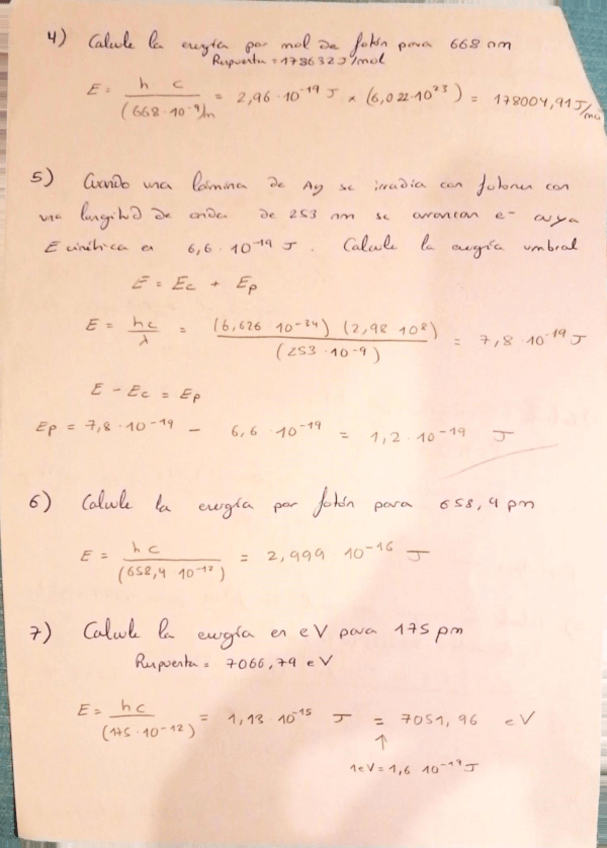 4) Calcule la energía por mol de fotón para 668 nm
Respuesta = 178632 J/mol
E = h c / (668·10⁻⁹)m = 2,96·10⁻¹⁹ J × (6,022·10²³) = 178004,91 J/mol
5) Cuando una lámina de Ag se irradia con fotones con
una longitud de onda de 253 nm se arrancan e⁻ cuya
E cinética es 6,6·10⁻¹⁹ J. Calcule la energía umbral
E = Ec + Ep
E = hc / λ = (6,626 10⁻³⁴) (2,98 10⁸) / (253·10⁻⁹) = 7,8·10⁻¹⁹ J
E - Ec = Ep
Ep = 7,8·10⁻¹⁹ - 6,6·10⁻¹⁹ = 1,2·10⁻¹⁹ J
6) Calcule la energía por fotón para 658,4 pm
E = hc / (658,4 10⁻¹²) = 2,999 10⁻¹⁶ J
7) Calcule la energía en eV para 175 pm
Respuesta = 7066,79 eV
E = hc / (175·10⁻¹²) = 1,13·10⁻¹⁵ J = 7051,96 eV
↑
1eV = 1,6·10⁻¹⁹ J